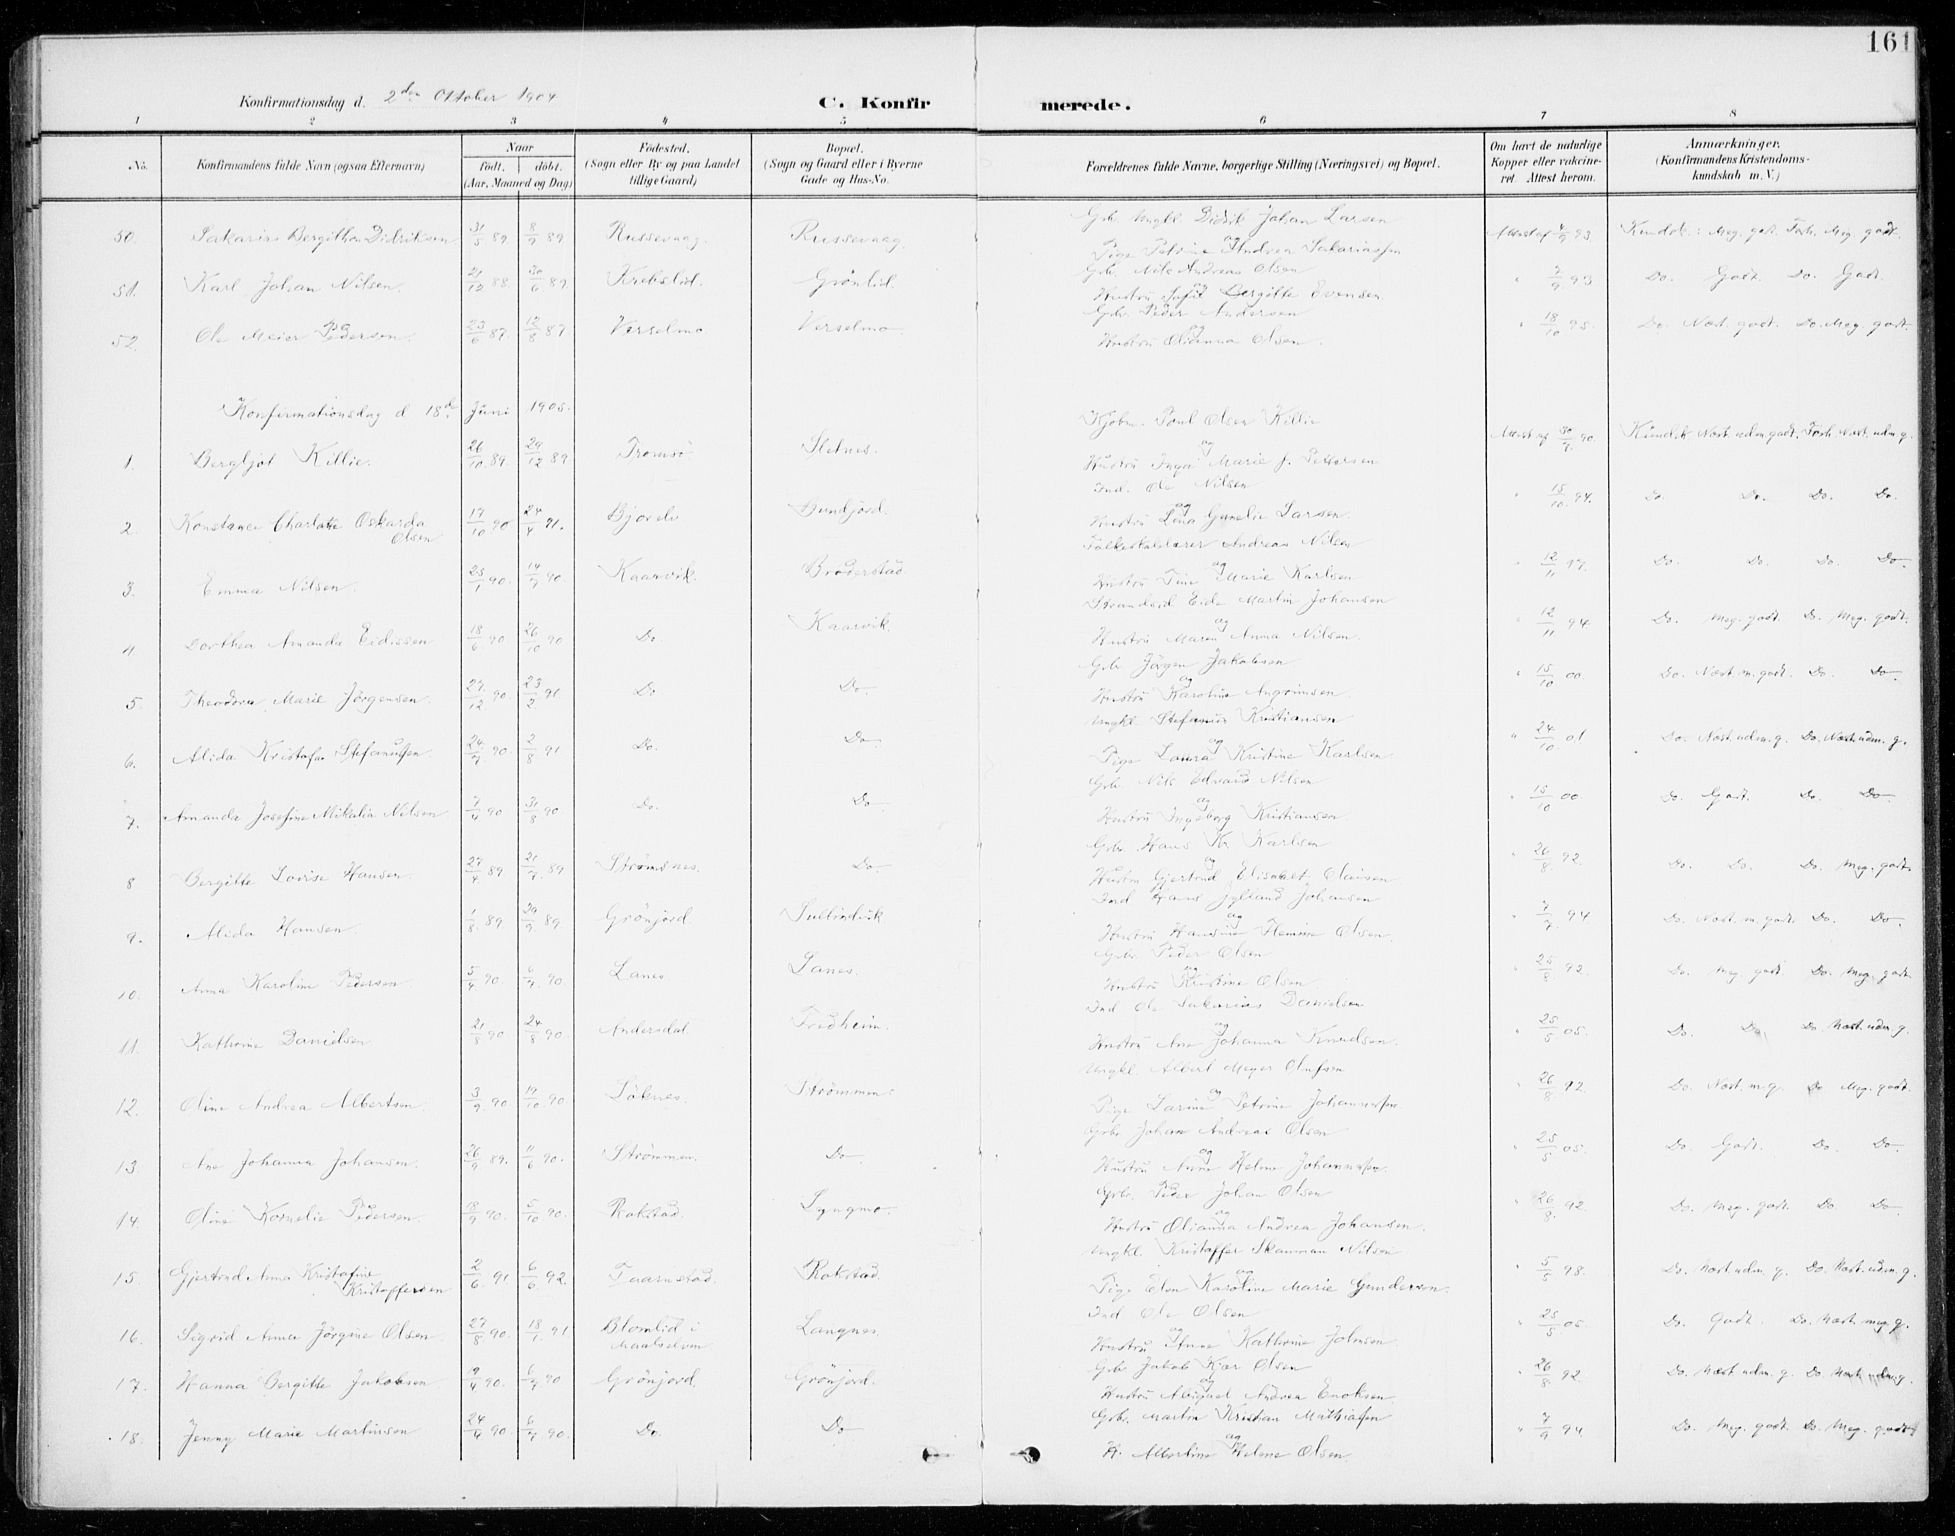 161
Konfirmationsdag d. 2den Oktober 1904
C. Konfirmerede.
1 2 3 4 5 6 7 8
No. Konfirmandens fulde Navn (ogsaa Efternavn) Naar født. døbt. (Aar, Maaned og Dag) Fødested. (Sogn eller By og paa Landet tillige Gaard) Bopæl. (Sogn og Gaard eller i Byerne Gade og Hus-No. Forældrenes fulde Navne, borgerlige Stilling (Næringsvei) og Bopæl. Om havt de naturlige Kopper eller vakcineret. Attest herom. Anmærkninger. (Konfirmandens Kristendomskundskab m. V.)
50. Sakarius Bergithon Didriksen 31/5 89 8/9 89 Russevaag. Russevaag. Gbr. Ungkl. Didrik Johan Larsen og Pige Petrine Andrea Sakariassen Attest af 4/9 93. Kundsk: Meg. godt. Forh. Meg. godt.
51. Karl Johan Nilsen. 21/12 88 30/6 89 Krebslid. Grönlid. Gbr. Nils Andreas Olsen og Hustru Sofie Bergitte Evensen " 7/9 93 Do. Godt. Do. Godt.
52. Ole Meier Pedersen. 23/6 87. 12/8 87 Verselmo Verselmo Gbr. Peder Andersen og Hustru Olianna Olsen. " 18/10 95. Do. Næst. godt. Do. Meg. godt.
Konfirmationsdag d 18de Juni 1905.
1. Bergljot Killie. 26/10 89. 29/12 89 Tromsö Sletnes. Kjøbm. Poul Olsen Killie og Hustru Inga Marie J. Pettersen Attest af 30/7 90. Kundsk. Næst. udm. godt. Forh. Næst. udm. g.
2. Konstance Charlotte Oskarda Olsen 17/10 90 24/4 91. Bjorelv Sundfjord. Ind. Ole Nilsen og Hustru Lina Gunelie Larsen. " 15/10 94. Do. Do. Do. Do.
3. Emma Nilsen. 25/1 90. 14/9 90 Kaarvik. Bröderstad. Folkeskolelærer Andreas Nilsen og Hustru Tine Marie Karlsen " 12/11 97. Do. Do. Do. Do.
4. Dorthea Amanda Eidissen 18/6 90 26/10 90 Do. Kaarvik. Strandsid Eide Martin Johansen og Hustru Maren Anna Nilsen. " 12/11 94 Do. Meg. godt. Do. Meg. godt.
5. Theodora Marie Jörgensen. 27/12 90. 23/2 91 Do. Do. Gbr Jörgen Jakobsen og Hustru Karoline Angrimsen. " 15/10 00. Do. Næst. m. godt. Do. Do.
6. Alida Kristofa Stefanussen. 24/9 90. 2/8 91 Do. Do. Ungkl. Stefanus Kristiansen og Pige Laura Kristine Karlsen " 24/10 01 Do. Næst. udm. g. Do. Næst. udm. g.
7. Amanda Josefine Mikalia Nilsen 7/4 90 31/8 90 Do. Do. Gbr. Nils Edvard Nilsen og Hustru Ingeborg Kristiansen. " 15/10 00 Do. Godt. Do. Do.
8 Bergitte Lovise Hansen. 27/4 89. 21/7 89 Strömsnes. Do. Gbr. Hans Kr. Karlsen og Hustru Gjertrud Elisabet Olaisen " 26/8 92. Do. Do. Do. Meg. godt.
9. Alida Hansen. 1/8 89 29/9 89 Grönjord. Sultindvik Ind Hans Jylland Johansen og Hustru Hansine Hemine Olsen. " 7/9 94 Do. Næst. m. godt. Do. Do.
10. Anna Karoline Pedersen 5/4 90. 6/7 90. Lanes Sanes. Gbr. Peder Olsen og Hustru Kristine Olsen. " 25/8 92. Do. Meg. godt Do. Meg. godt.
11. Kathrine Danielsen 21/8 90 24/8 90. Andersdal Fredheim. Ind Ole Sakarias Danielsen og Hustru Ane Johanna Knudsen. " 25/5 05. Do. Do. Do. Næst. udm. g.
12. Oline Andrea Albertsen. 3/9 90. 19/10 90 Söknes. Strömmen. Ungkl. Albert Meyer Olufsen og Pige Larine Petrine Johannessen " 26/8 92. Do. Næst. m. g. Do Meg. godt.
13. Ane Johanna Johansen. 26/9 89. 11/6 90. Strömmen. Do. Gbr. Johan Andreas Olsen og Hustru Anne Helene Johannessen " 25/5 05. Do. Godt. Do. Do.
14. Oline Kornelie Pedersen. 18/9 90. 5/10 90. Rokstad. Lyngmo. Gbr. Peder Johan Olsen og Hustru Olianna Andrea Johansen. " 26/8 92. Do. Meg. godt. Do. Do.
15. Gjertrud Anna Kristofine Kristoffersen 2/6 91 6/6 92. Taarnstad. Rokstad Ungkl. Kristoffer Skamman Nilsen og Pige Elen Karoline Marie Gundersen. " 5/5 98. Do. Næst. udm. g. Do. Næst. udm. g.
16. Sigrid Anna Jörgine Olsen. 27/8 90. 18/1 91 Blomlid i Maalselven Langnes. Ind Ole Olsen og Hustru Anne Kathrine Johnsen. " 25/5 05. Do. Godt. Do. Næst. meg. g.
17. Hanna Bergitte Jakobsen 19/4 90. 6/7 90. Grönjord. Grönjord. Gbr Jakob Kjær Olsen og Hustru Abigael Andrea Enoksen. " 26/8 92. Do. Næst udm. g. Do. Næst udm g.
18. Jenny Marie Martinsen 24/4 90 6/7 90. Do. Do. Gbr. Martin Kristian Mathiasen og H. Albertine Helene Olsen. " 7/9 94. Do. Meg. godt. Do. Meg. godt